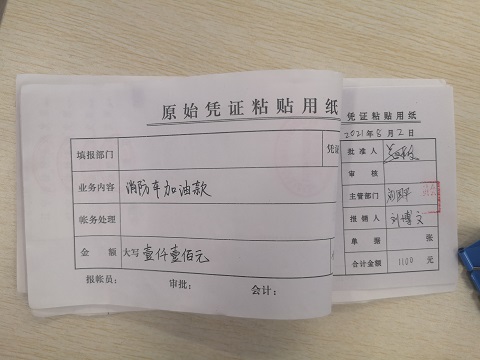 原始凭证粘贴用纸
填报部门
凭证
业务内容 消防车加油款
帐务处理
金 额 大写 壹仟壹佰元
报帐员： 审批： 会计：
凭证粘贴用纸
2021年8月2日
批准人
审 核
主管部门
报销人 刘博文
单 据 张
合计金额 1100 元